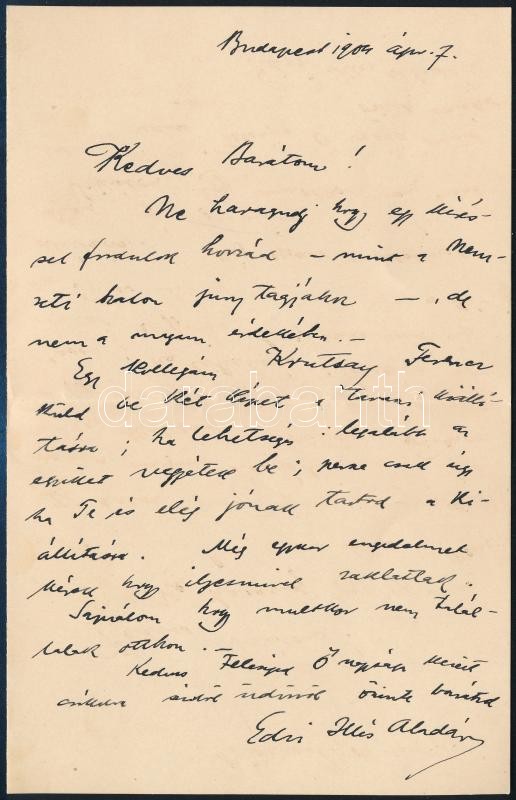 Budapest 1904 ápr. 7.
Kedves Barátom!
Ne haragudj hogy egy kérés-
sel fordulok hozzád – mint a Nem-
zeti Szalon jury tagjához –, de
nem a magam érdekében. –
Egy kollegám Krutsay Ferenc
küld be két képet a tavaszi kiállí-
tásra; ha lehetséges legalább az
egyiket vegyétek be; persze csak úgy
ha Te is elég jónak tartod a ki-
állításra. Még egyszer engedelmet
kérek hogy ilyesmivel zaklatlak.
Sajnálom hogy multkor nem talál-
talak otthon. –
Kedves Feleséged Ő nagysága kezeit
csókolva szívből üdvözöl őszinte barátod
Edvi Illés Aladár
darabanth